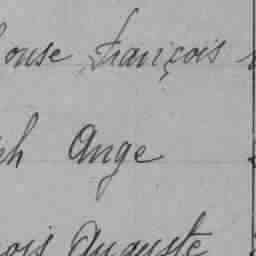 ouse françois
ph Ange
çois Auguste